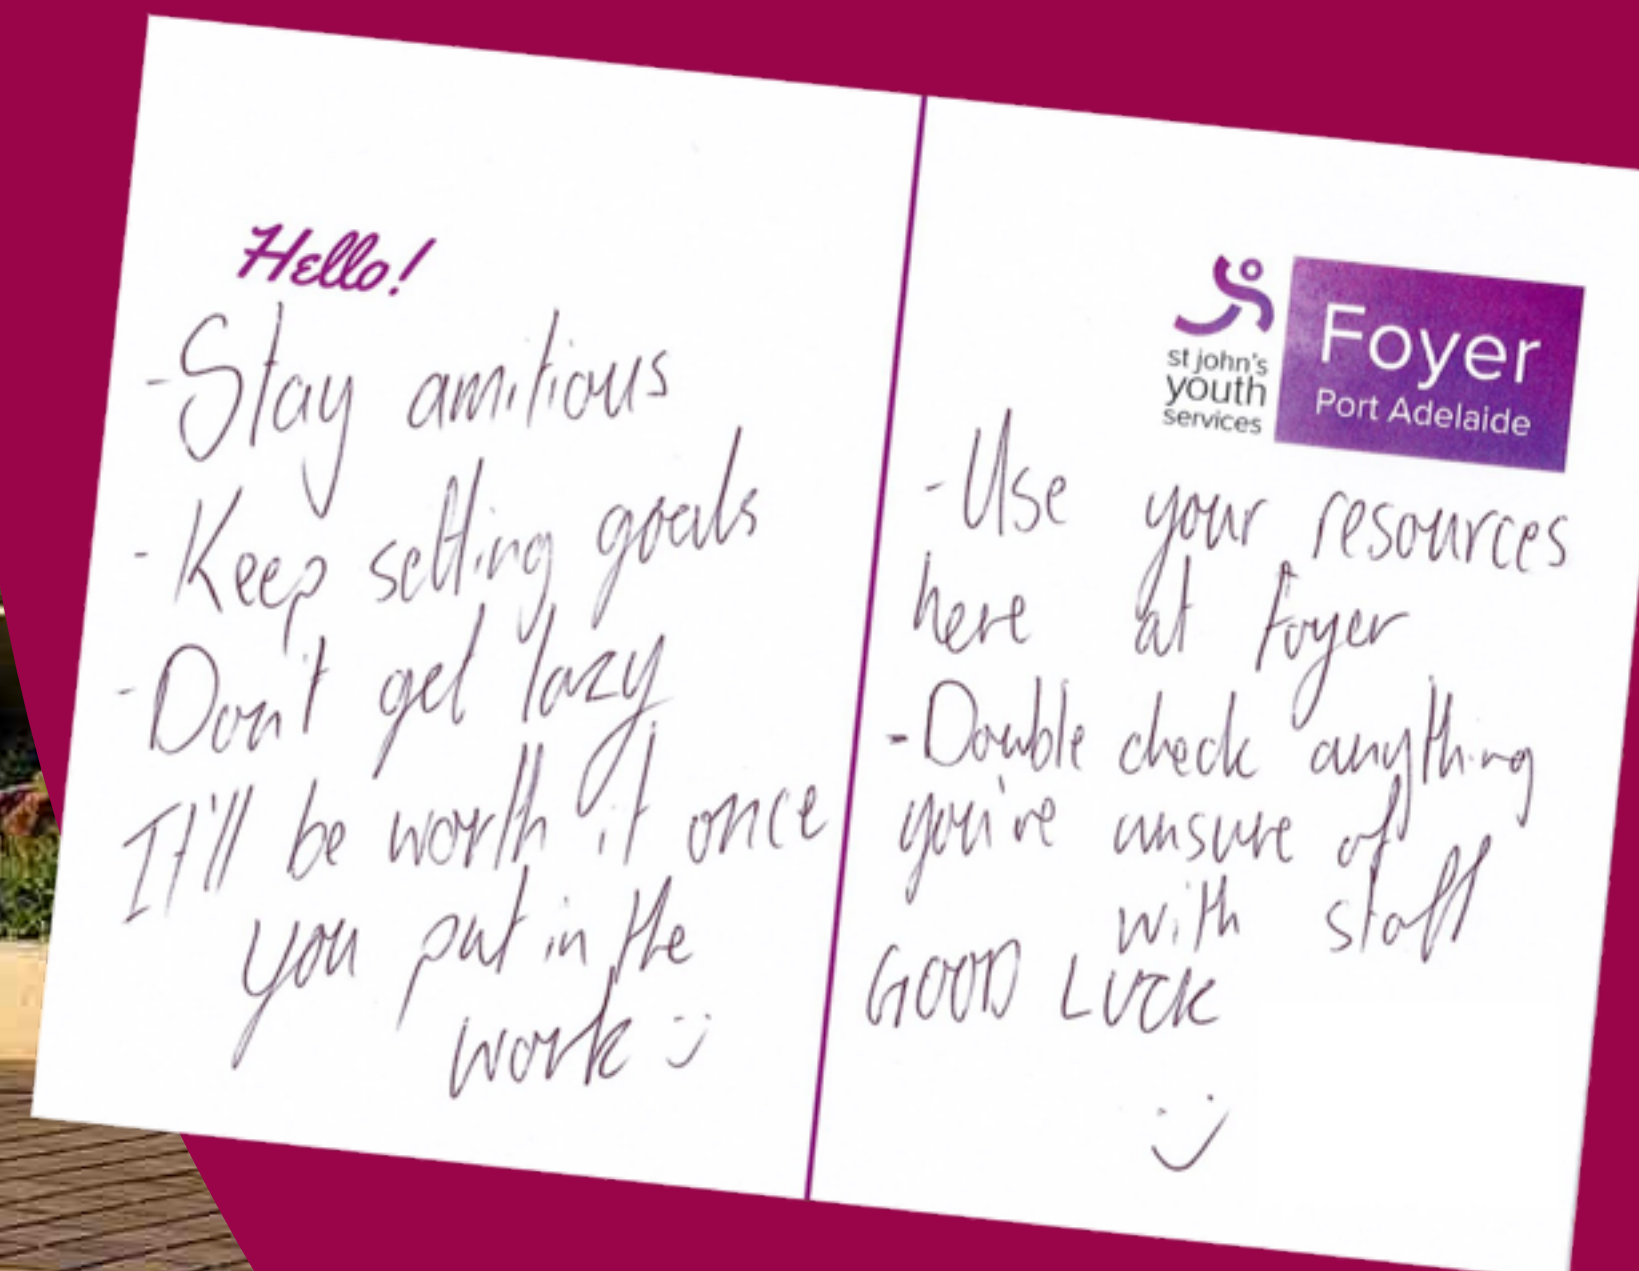 Hello!
-Stay amitious
-Keep setting goals
-Don't get lazy
It'll be worth it once
you put in the
work :)
st john's
youth
services
Foyer
Port Adelaide
-Use your resources
here at Foyer
-Double check anything
you're unsure of
with staff
GOOD LUCK
:)